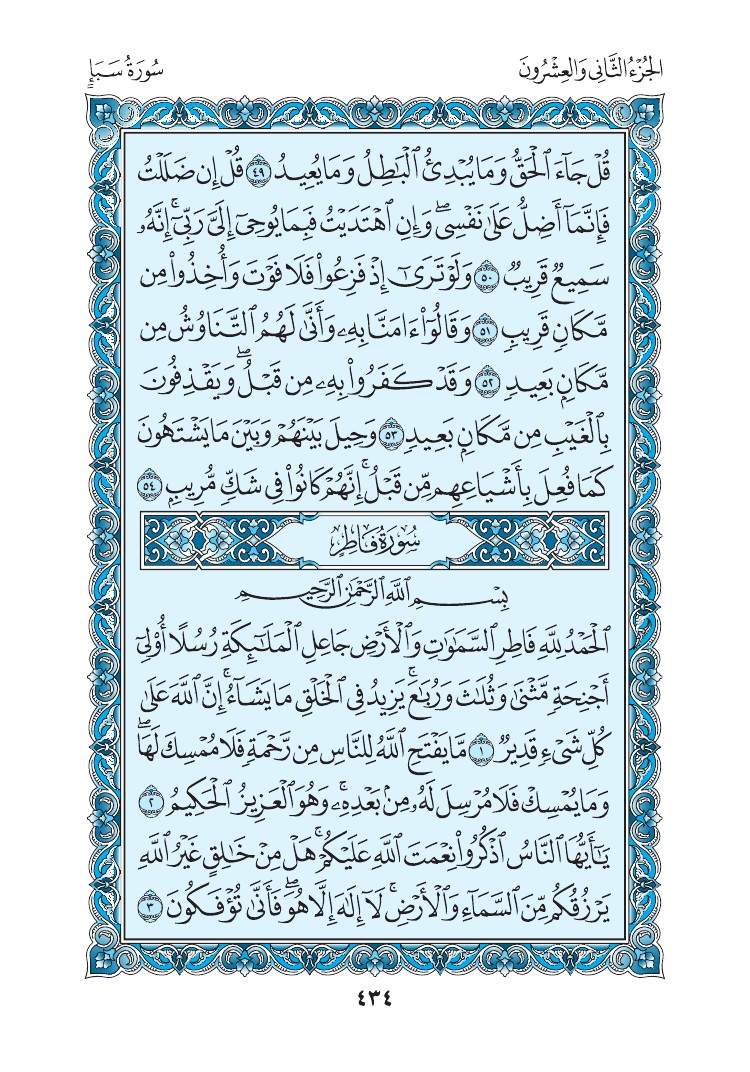 الجُزْءُ الثَّانِي وَالعِشْرُونَ
سُورَةُ سَبَإٍ
قُلْ جَآءَ ٱلْحَقُّ وَمَا يُبْدِئُ ٱلْبَٰطِلُ وَمَا يُعِيدُ ٤٩ قُلْ إِن ضَلَلْتُ
فَإِنَّمَآ أَضِلُّ عَلَىٰ نَفْسِى ۖ وَإِنِ ٱهْتَدَيْتُ فَبِمَا يُوحِىٓ إِلَىَّ رَبِّىٓ ۚ إِنَّهُۥ
سَمِيعٌ قَرِيبٌ ٥٠ وَلَوْ تَرَىٰٓ إِذْ فَزِعُوا۟ فَلَا فَوْتَ وَأُخِذُوا۟ مِن
مَّكَانٍ قَرِيبٍ ٥١ وَقَالُوٓا۟ ءَامَنَّا بِهِۦ وَأَنَّىٰ لَهُمُ ٱلتَّنَاوُشُ مِن
مَّكَانٍۭ بَعِيدٍ ٥٢ وَقَدْ كَفَرُوا۟ بِهِۦ مِن قَبْلُ ۖ وَيَقْذِفُونَ
بِٱلْغَيْبِ مِن مَّكَانٍۭ بَعِيدٍ ٥٣ وَحِيلَ بَيْنَهُمْ وَبَيْنَ مَا يَشْتَهُونَ
كَمَا فُعِلَ بِأَشْيَاعِهِم مِّن قَبْلُ ۚ إِنَّهُمْ كَانُوا۟ فِى شَكٍّ مُّرِيبٍۭ ٥٤
سُورَةُ فَاطِرٍ
بِسْمِ ٱللَّهِ ٱلرَّحْمَٰنِ ٱلرَّحِيمِ
ٱلْحَمْدُ لِلَّهِ فَاطِرِ ٱلسَّمَٰوَٰتِ وَٱلْأَرْضِ جَاعِلِ ٱلْمَلَٰٓئِكَةِ رُسُلًا أُو۟لِىٓ
أَجْنِحَةٍ مَّثْنَىٰ وَثُلَٰثَ وَرُبَٰعَ ۚ يَزِيدُ فِى ٱلْخَلْقِ مَا يَشَآءُ ۚ إِنَّ ٱللَّهَ عَلَىٰ
كُلِّ شَىْءٍ قَدِيرٌ ١ مَّا يَفْتَحِ ٱللَّهُ لِلنَّاسِ مِن رَّحْمَةٍ فَلَا مُمْسِكَ لَهَا ۖ
وَمَا يُمْسِكْ فَلَا مُرْسِلَ لَهُۥ مِنۢ بَعْدِهِۦ ۚ وَهُوَ ٱلْعَزِيزُ ٱلْحَكِيمُ ٢
يَٰٓأَيُّهَا ٱلنَّاسُ ٱذْكُرُوا۟ نِعْمَتَ ٱللَّهِ عَلَيْكُمْ ۚ هَلْ مِنْ خَٰلِقٍ غَيْرُ ٱللَّهِ
يَرْزُقُكُم مِّنَ ٱلسَّمَآءِ وَٱلْأَرْضِ ۚ لَآ إِلَٰهَ إِلَّا هُوَ ۖ فَأَنَّىٰ تُؤْفَكُونَ ٣
٤٣٤